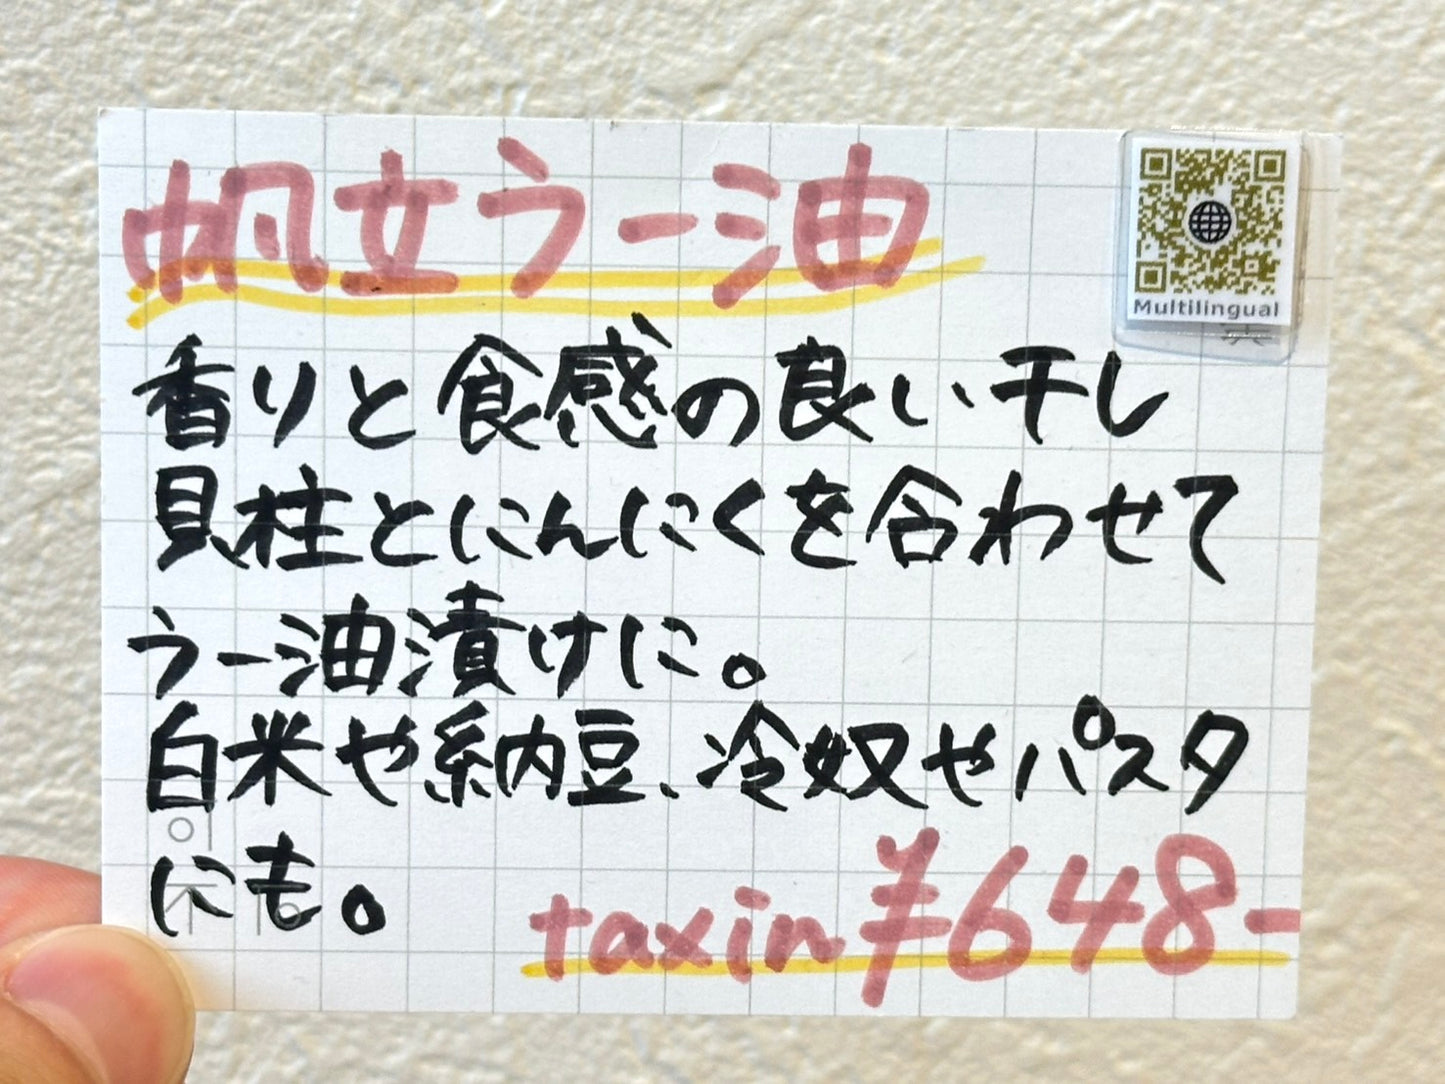 帆立ラー油
Multilingual
香りと食感の良い干し
貝柱とにんにくを合わせて
ラー油漬けに。
白米や納豆、冷奴やパスタ
にも。
taxin ¥648-